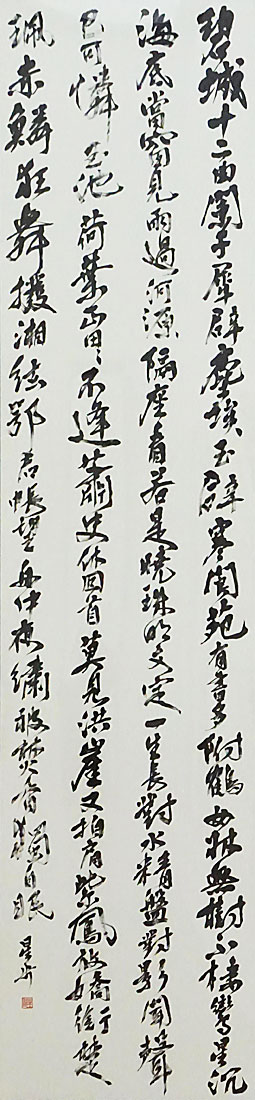 碧城十二曲闌干犀辟塵埃玉辟寒閬苑有書多附鶴女牀無樹不棲鸞星沉
海底當窗見雨過河源隔座看若是曉珠明又定一生長對水精盤對影聞聲
已可憐玉池荷葉正田〻不逢蕭史休回首莫見洪崖又拍肩紫鳳放嬌銜楚
珮赤鱗狂舞撥湘絃鄂君悵望舟中夜繡被焚香獨自眠